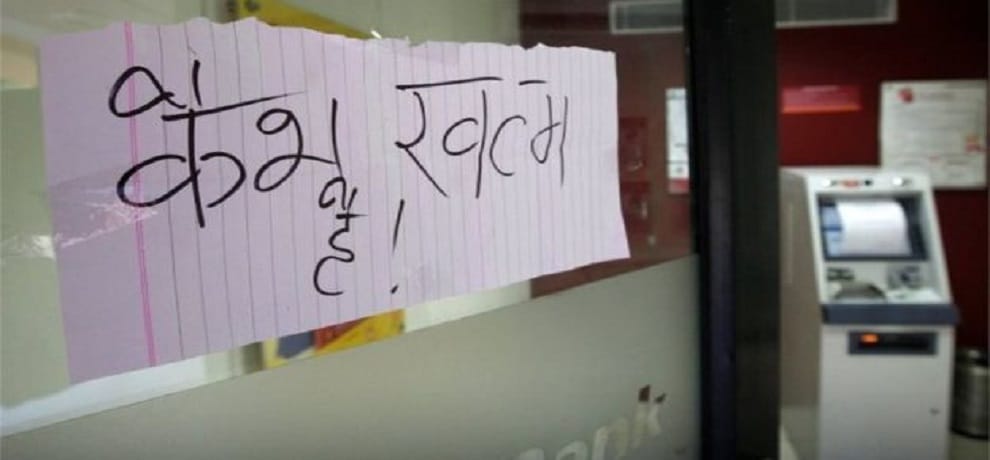 कैश खत्म
है!
ank